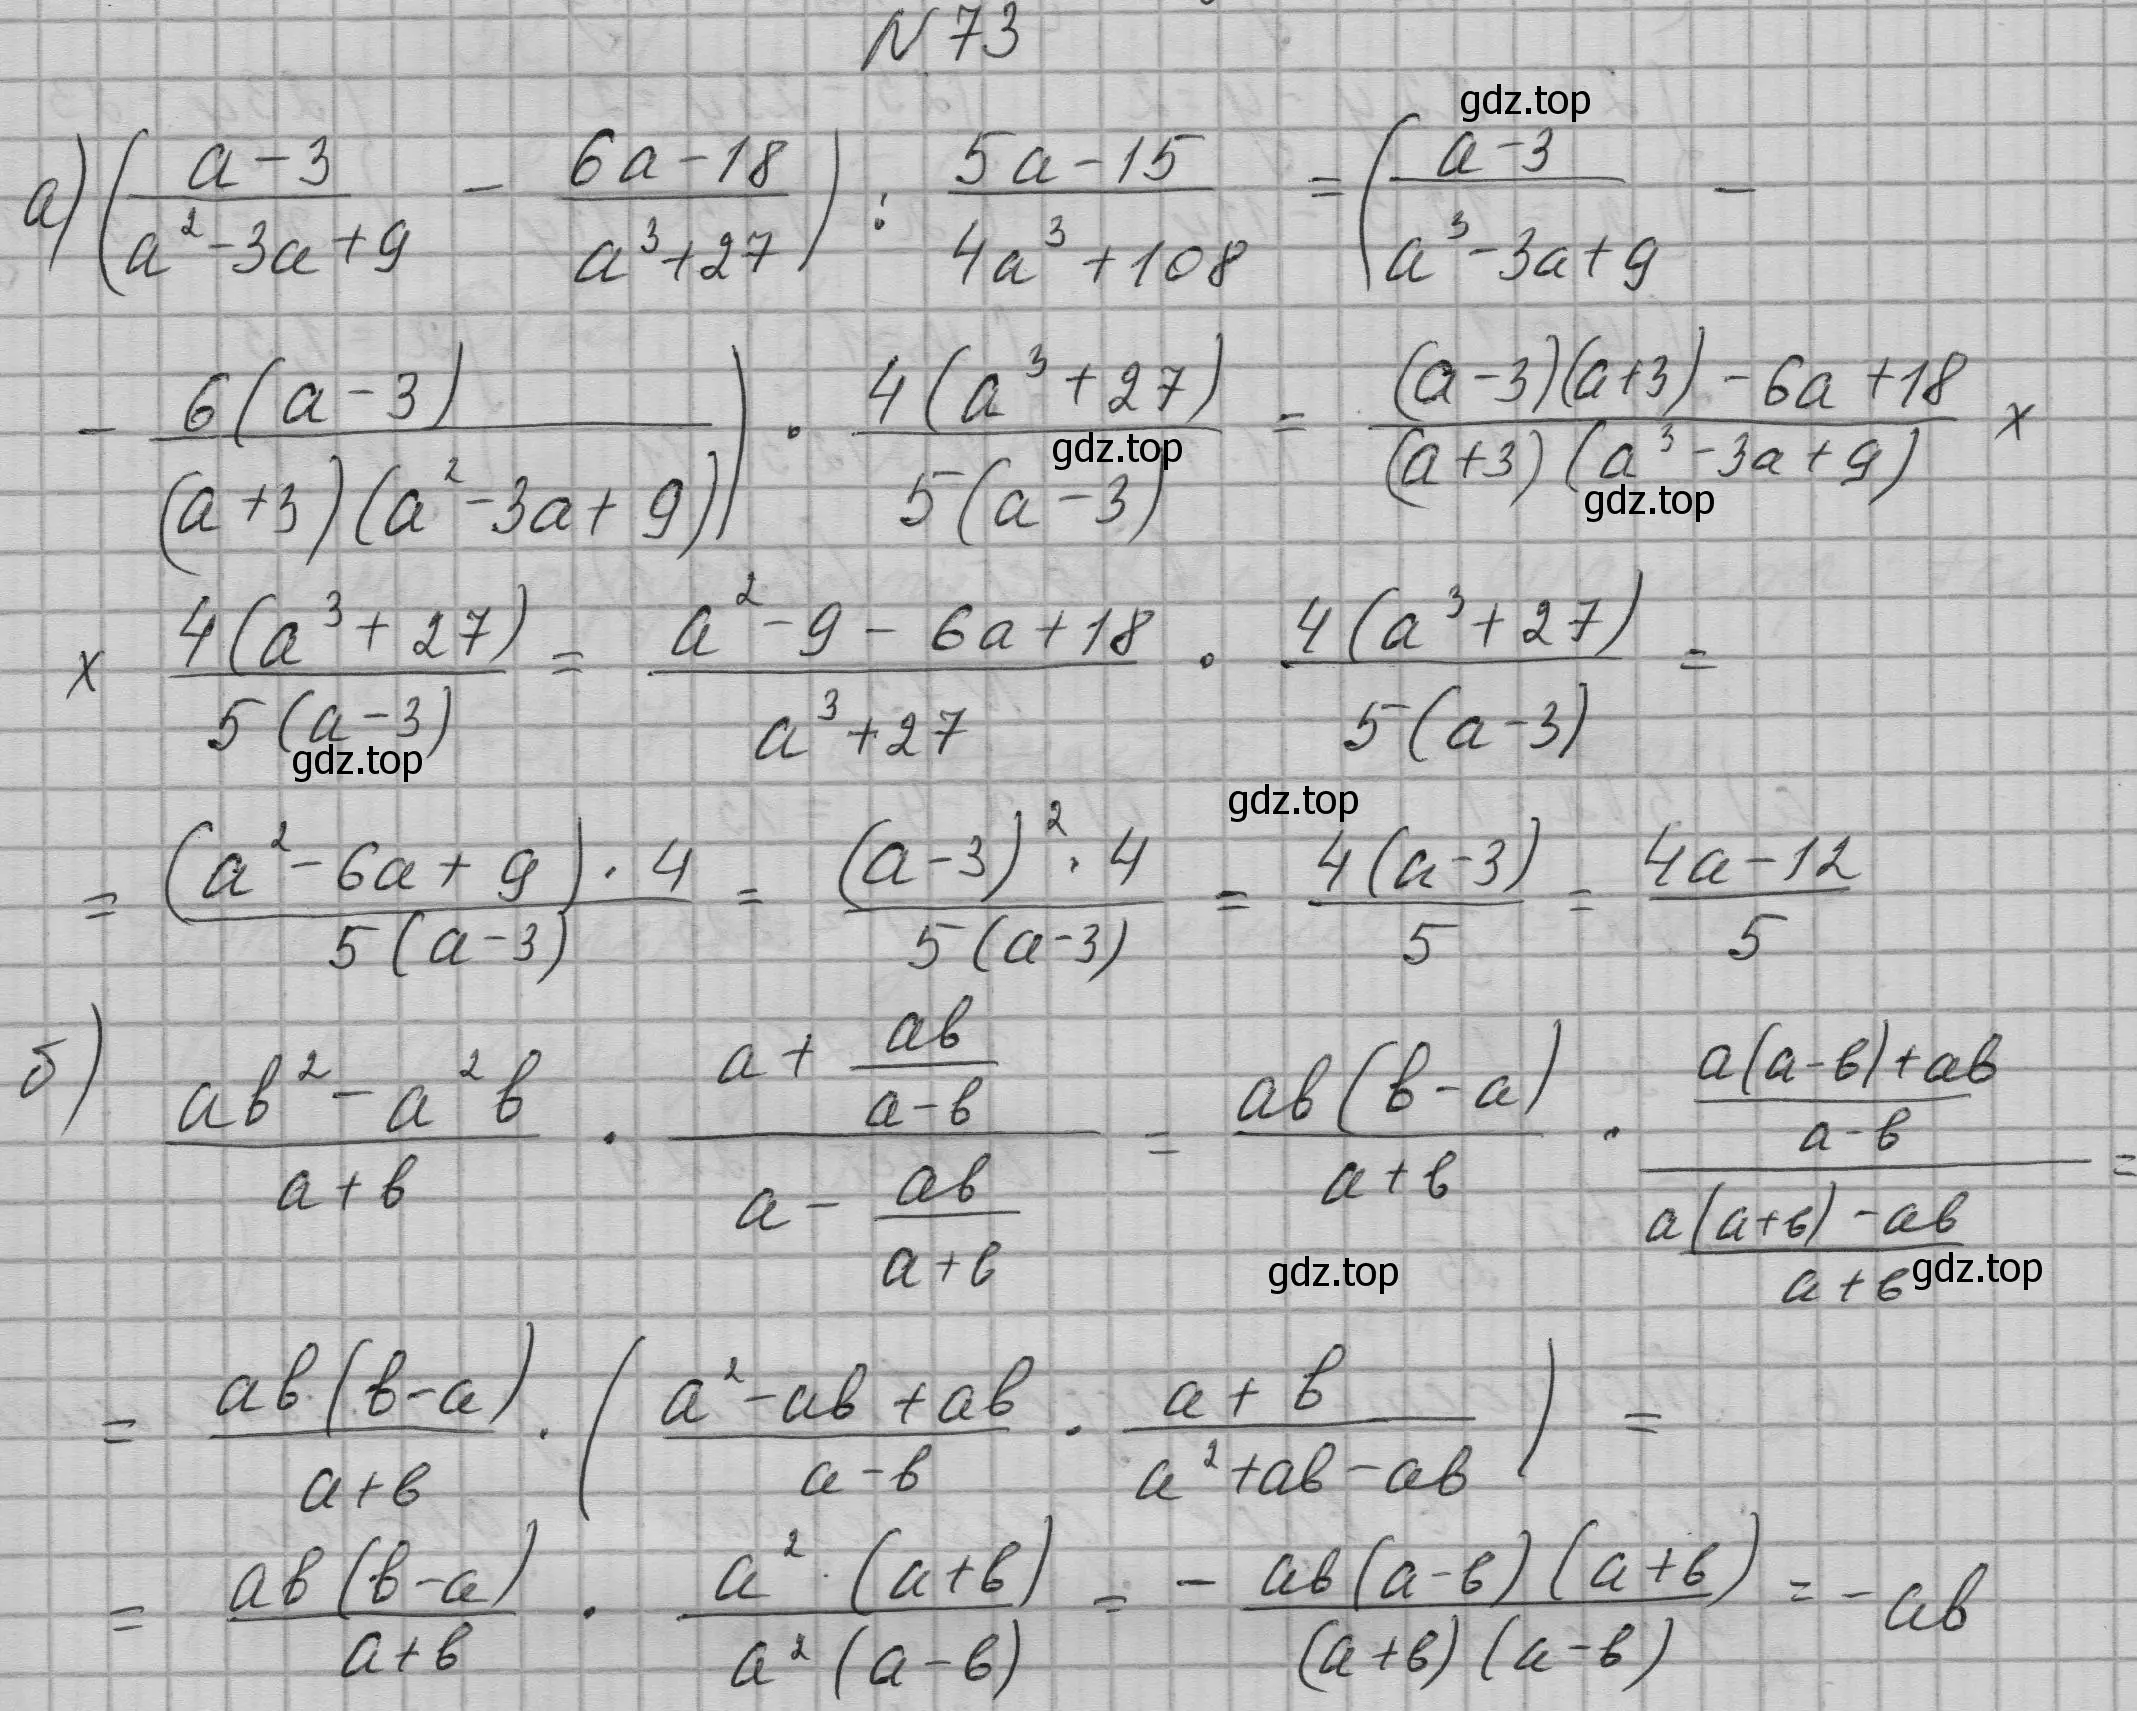 N 73
gdz.top
а) ((a-3)/(a²-3a+9) - (6a-18)/(a³+27)) : (5a-15)/(4a³+108) = ((a-3)/(a³-3a+9) -
- 6(a-3)/((a+3)(a²-3a+9))) · 4(a³+27)/(5(a-3)) = ((a-3)(a+3)-6a+18)/((a+3)(a³-3a+9)) x
gdz.top
gdz.top
x 4(a³+27)/(5(a-3)) = (a²-9-6a+18)/(a³+27) · 4(a³+27)/(5(a-3)) =
gdz.top
gdz.top
= ((a²-6a+9)·4)/(5(a-3)) = ((a-3)²·4)/(5(a-3)) = 4(a-3)/5 = (4a-12)/5
б) (ab²-a²b)/(a+b) · (a+ab/(a-b))/(a-ab/(a+b)) = ab(b-a)/(a+b) · ((a(a-b)+ab)/(a-b))/((a(a+b)-ab)/(a+b)) =
gdz.top
gdz.top
= ab(b-a)/(a+b) · ((a²-ab+ab)/(a-b) · (a+b)/(a²+ab-ab)) =
= ab(b-a)/(a+b) · a²·(a+b)/(a²(a-b)) = - ab(a-b)(a+b)/((a+b)(a-b)) = -ab